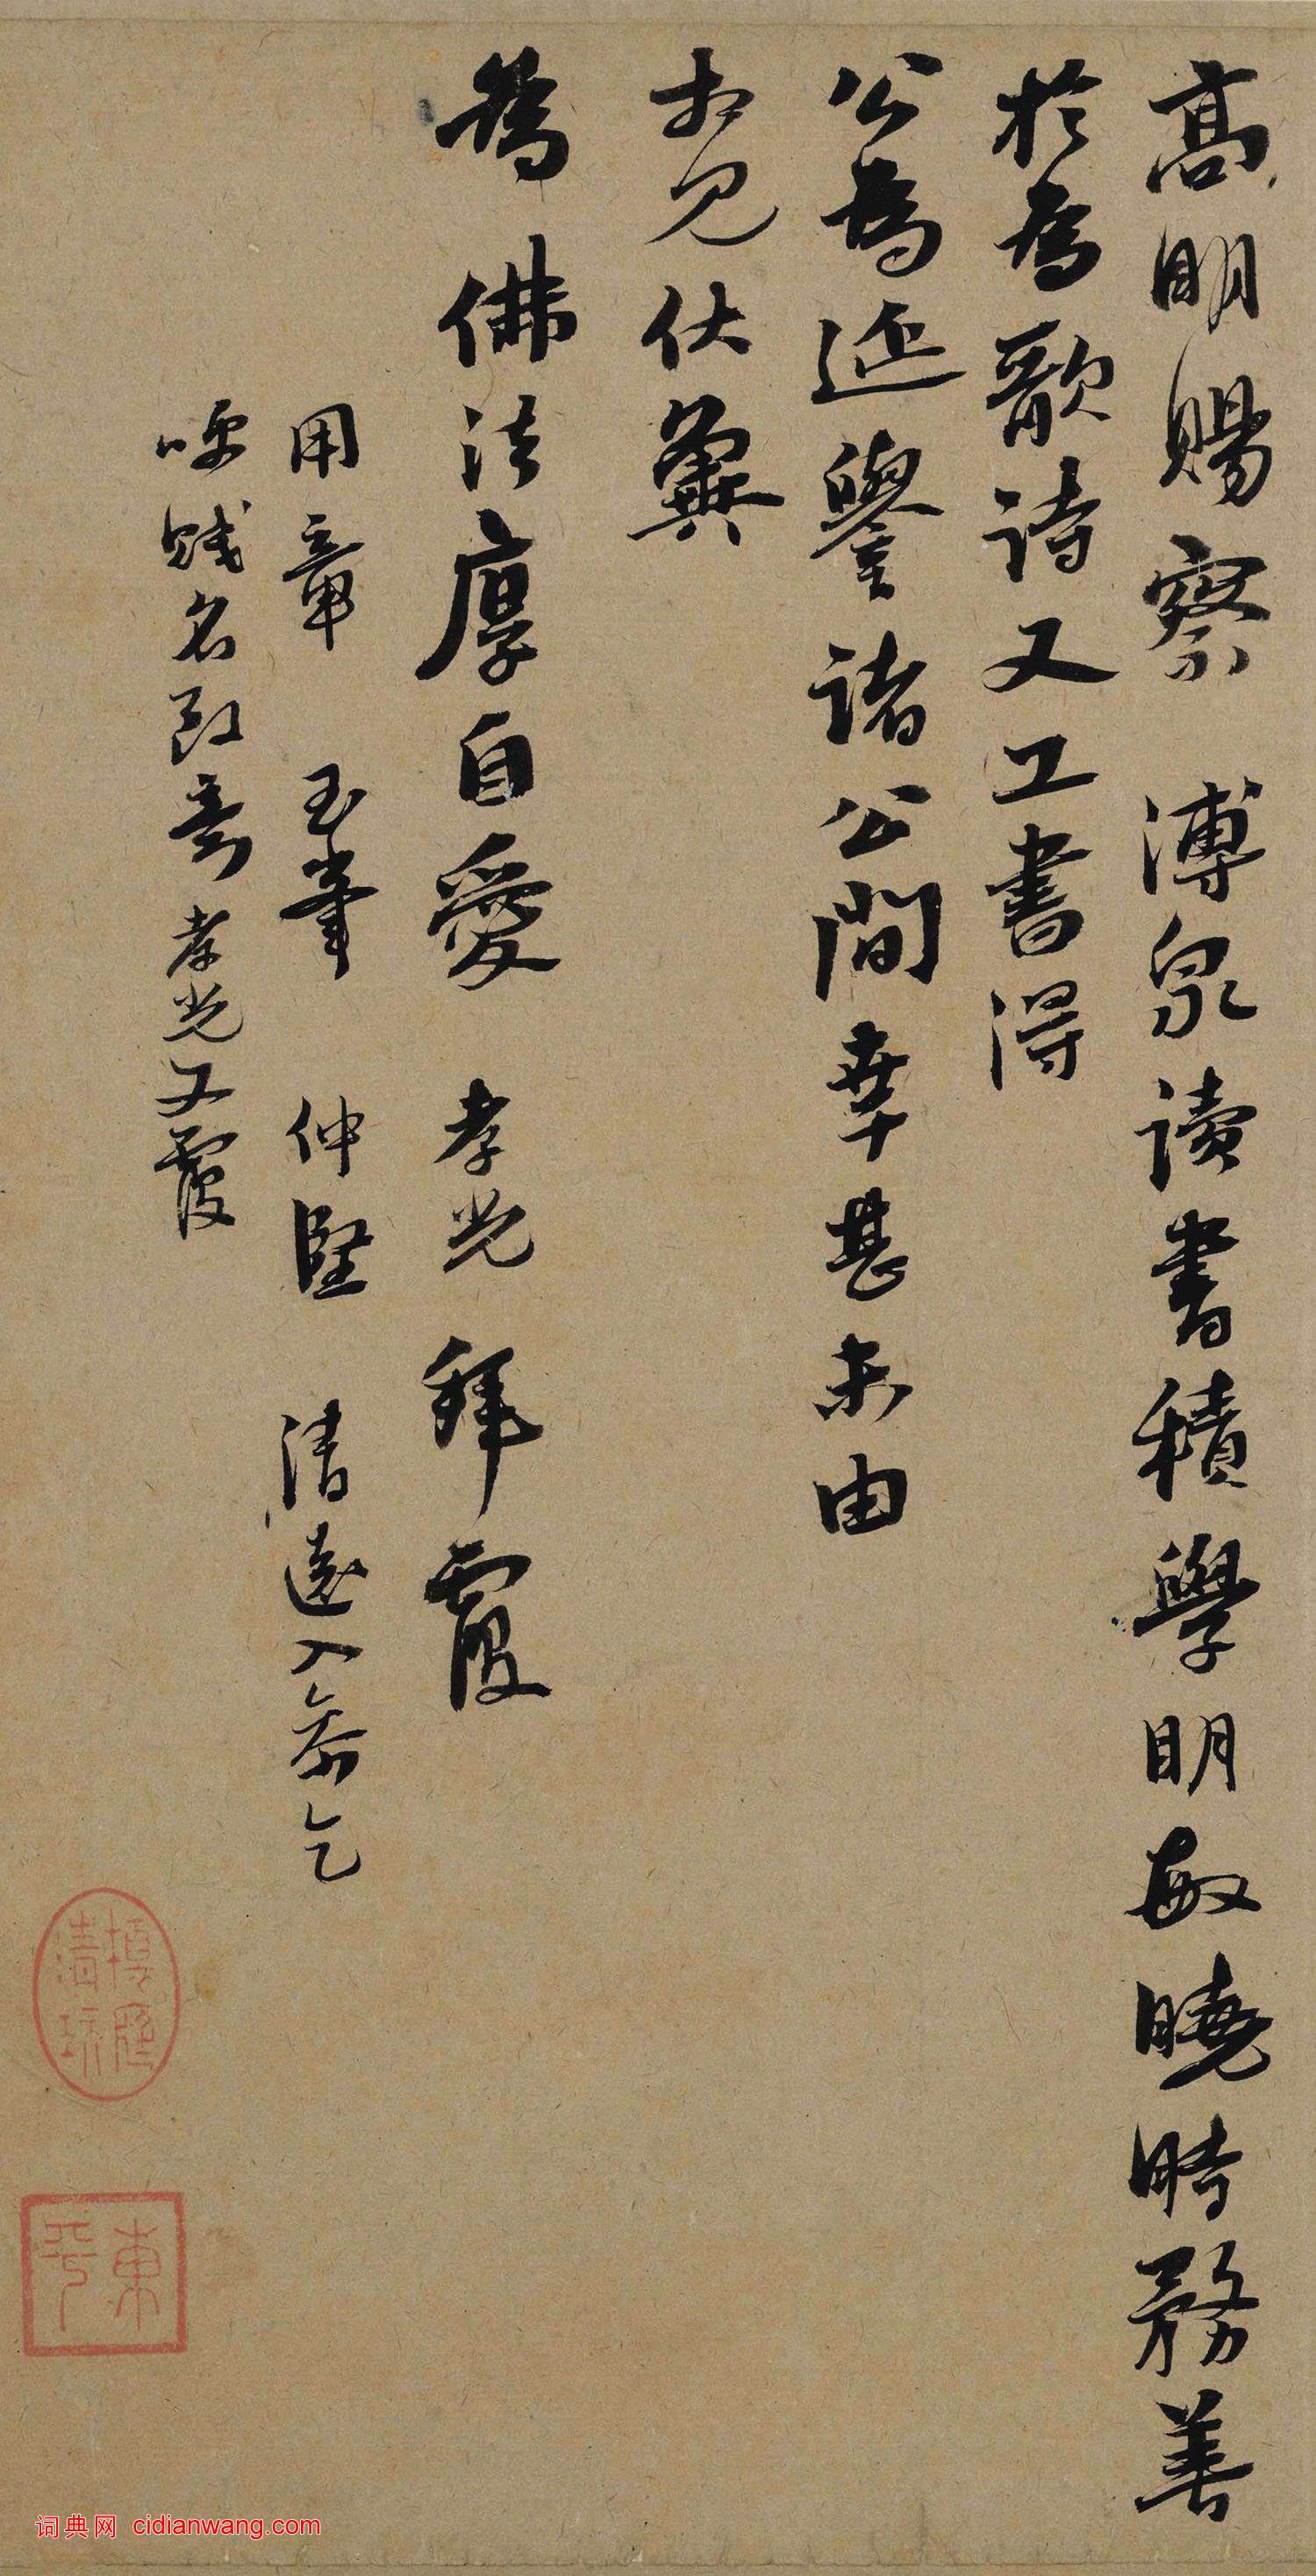 高明賜察 溥泉讀書積學明敏曉時務善
於為歌詩又工書得
公為延譽諸公間幸甚未由
相見伏冀
為 佛法厚自愛 孝光拜覆
用章 玉峯 仲堅 清遠入參乞
呼賤名致意 孝光又覆
清
東平
词典网 cidianwang.com